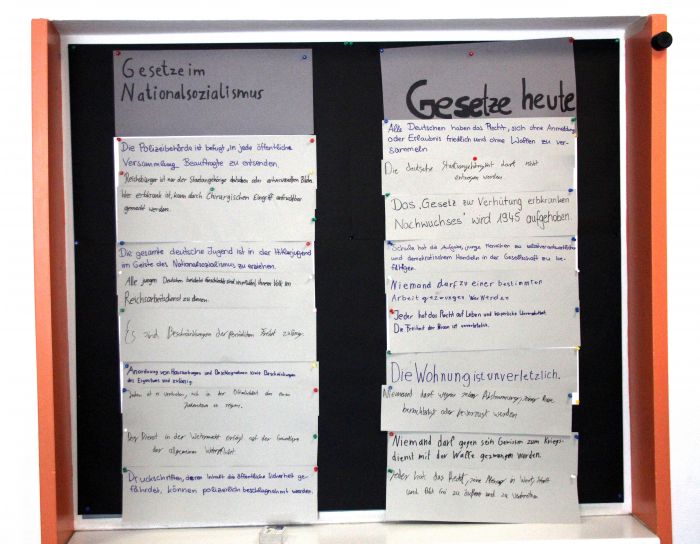 Gesetze im
Nationalsozialismus
Die Polizeibehörde ist befugt, in jede öffentliche
Versammlung Beauftragte zu entsenden.
Reichsbürger ist nur der Staatsangehörige deutschen oder artverwandten Blutes.
Wer erbkrank ist, kann durch Chirurgischen Eingriff unfruchtbar
gemacht werden.
Die gesamte deutsche Jugend ist in der Hitlerjugend
im Geiste des Nationalsozialismus zu erziehen.
Alle jungen Deutschen beiderlei Geschlechts sind verpflichtet, ihrem Volk im
Reichsarbeitsdienst zu dienen.
Es sind Beschränkungen der persönlichen Freiheit zulässig.
Anordnung von Haussuchungen und Beschlagnahmen sowie Beschränkungen
des Eigentums sind zulässig.
Juden ist es verboten, sich in der Öffentlichkeit
Judenstern zu zeigen.
Dienst in der Wehrmacht erfolgt auf der Grundlage
der allgemeinen Wehrpflicht.
Druckschriften, deren Inhalt die öffentliche Sicherheit ge-
fährdet, können polizeilich beschlagnahmt werden.
Gesetze heute
Alle Deutschen haben das Recht, sich ohne Anmeldung
oder Erlaubnis friedlich und ohne Waffen zu ver-
sammeln
Die deutsche Staatsangehörigkeit darf nicht
entzogen werden
Das "Gesetz zur Verhütung erbkranken
Nachwuchses" wird 1945 aufgehoben.
Schule hat die Aufgabe, junge Menschen zu selbstverantwortlichem
und demokratischem Handeln in der Gesellschaft zu be-
fähigen.
Niemand darf zu einer bestimmten
Arbeit gezwungen werden
Jeder hat das Recht auf Leben und körperliche Unversehrtheit.
Die Freiheit der Person ist unverletzlich.
Die Wohnung ist unverletzlich.
Niemand darf wegen seiner Abstammung, seiner Rasse
benachteiligt oder bevorzugt werden.
Niemand darf gegen sein Gewissen zum Kriegs-
dienst mit der Waffe gezwungen werden.
Jeder hat das Recht, seine Meinung in Wort, Schrift
und Bild frei zu äußern und zu verbreiten